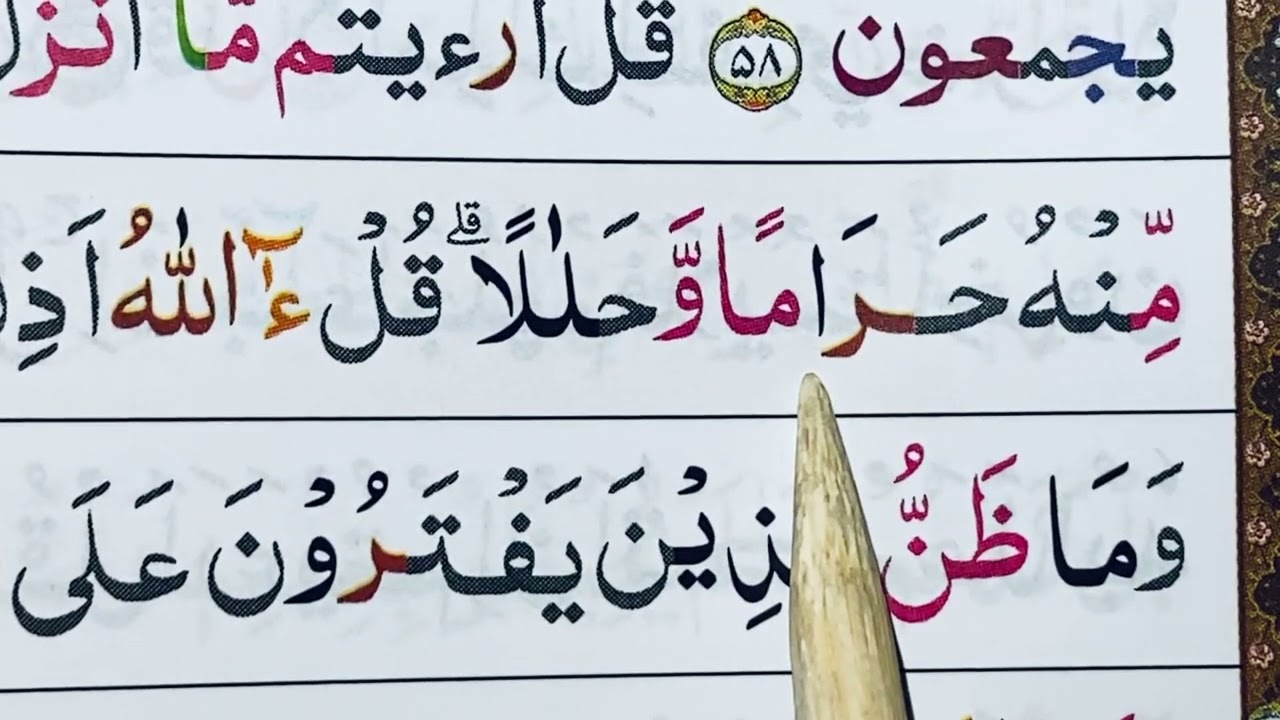 يجمعون ۵۸ قل ارءيتم مّا انز
مِّنْهُ حَرَامًا وَّ حَلٰلًا ؕقلے قُلْ ءٰٓاللّٰهُ اَذِ
وَمَا ظَنُّ ذِيْنَ يَفْتَرُوْنَ عَلَى